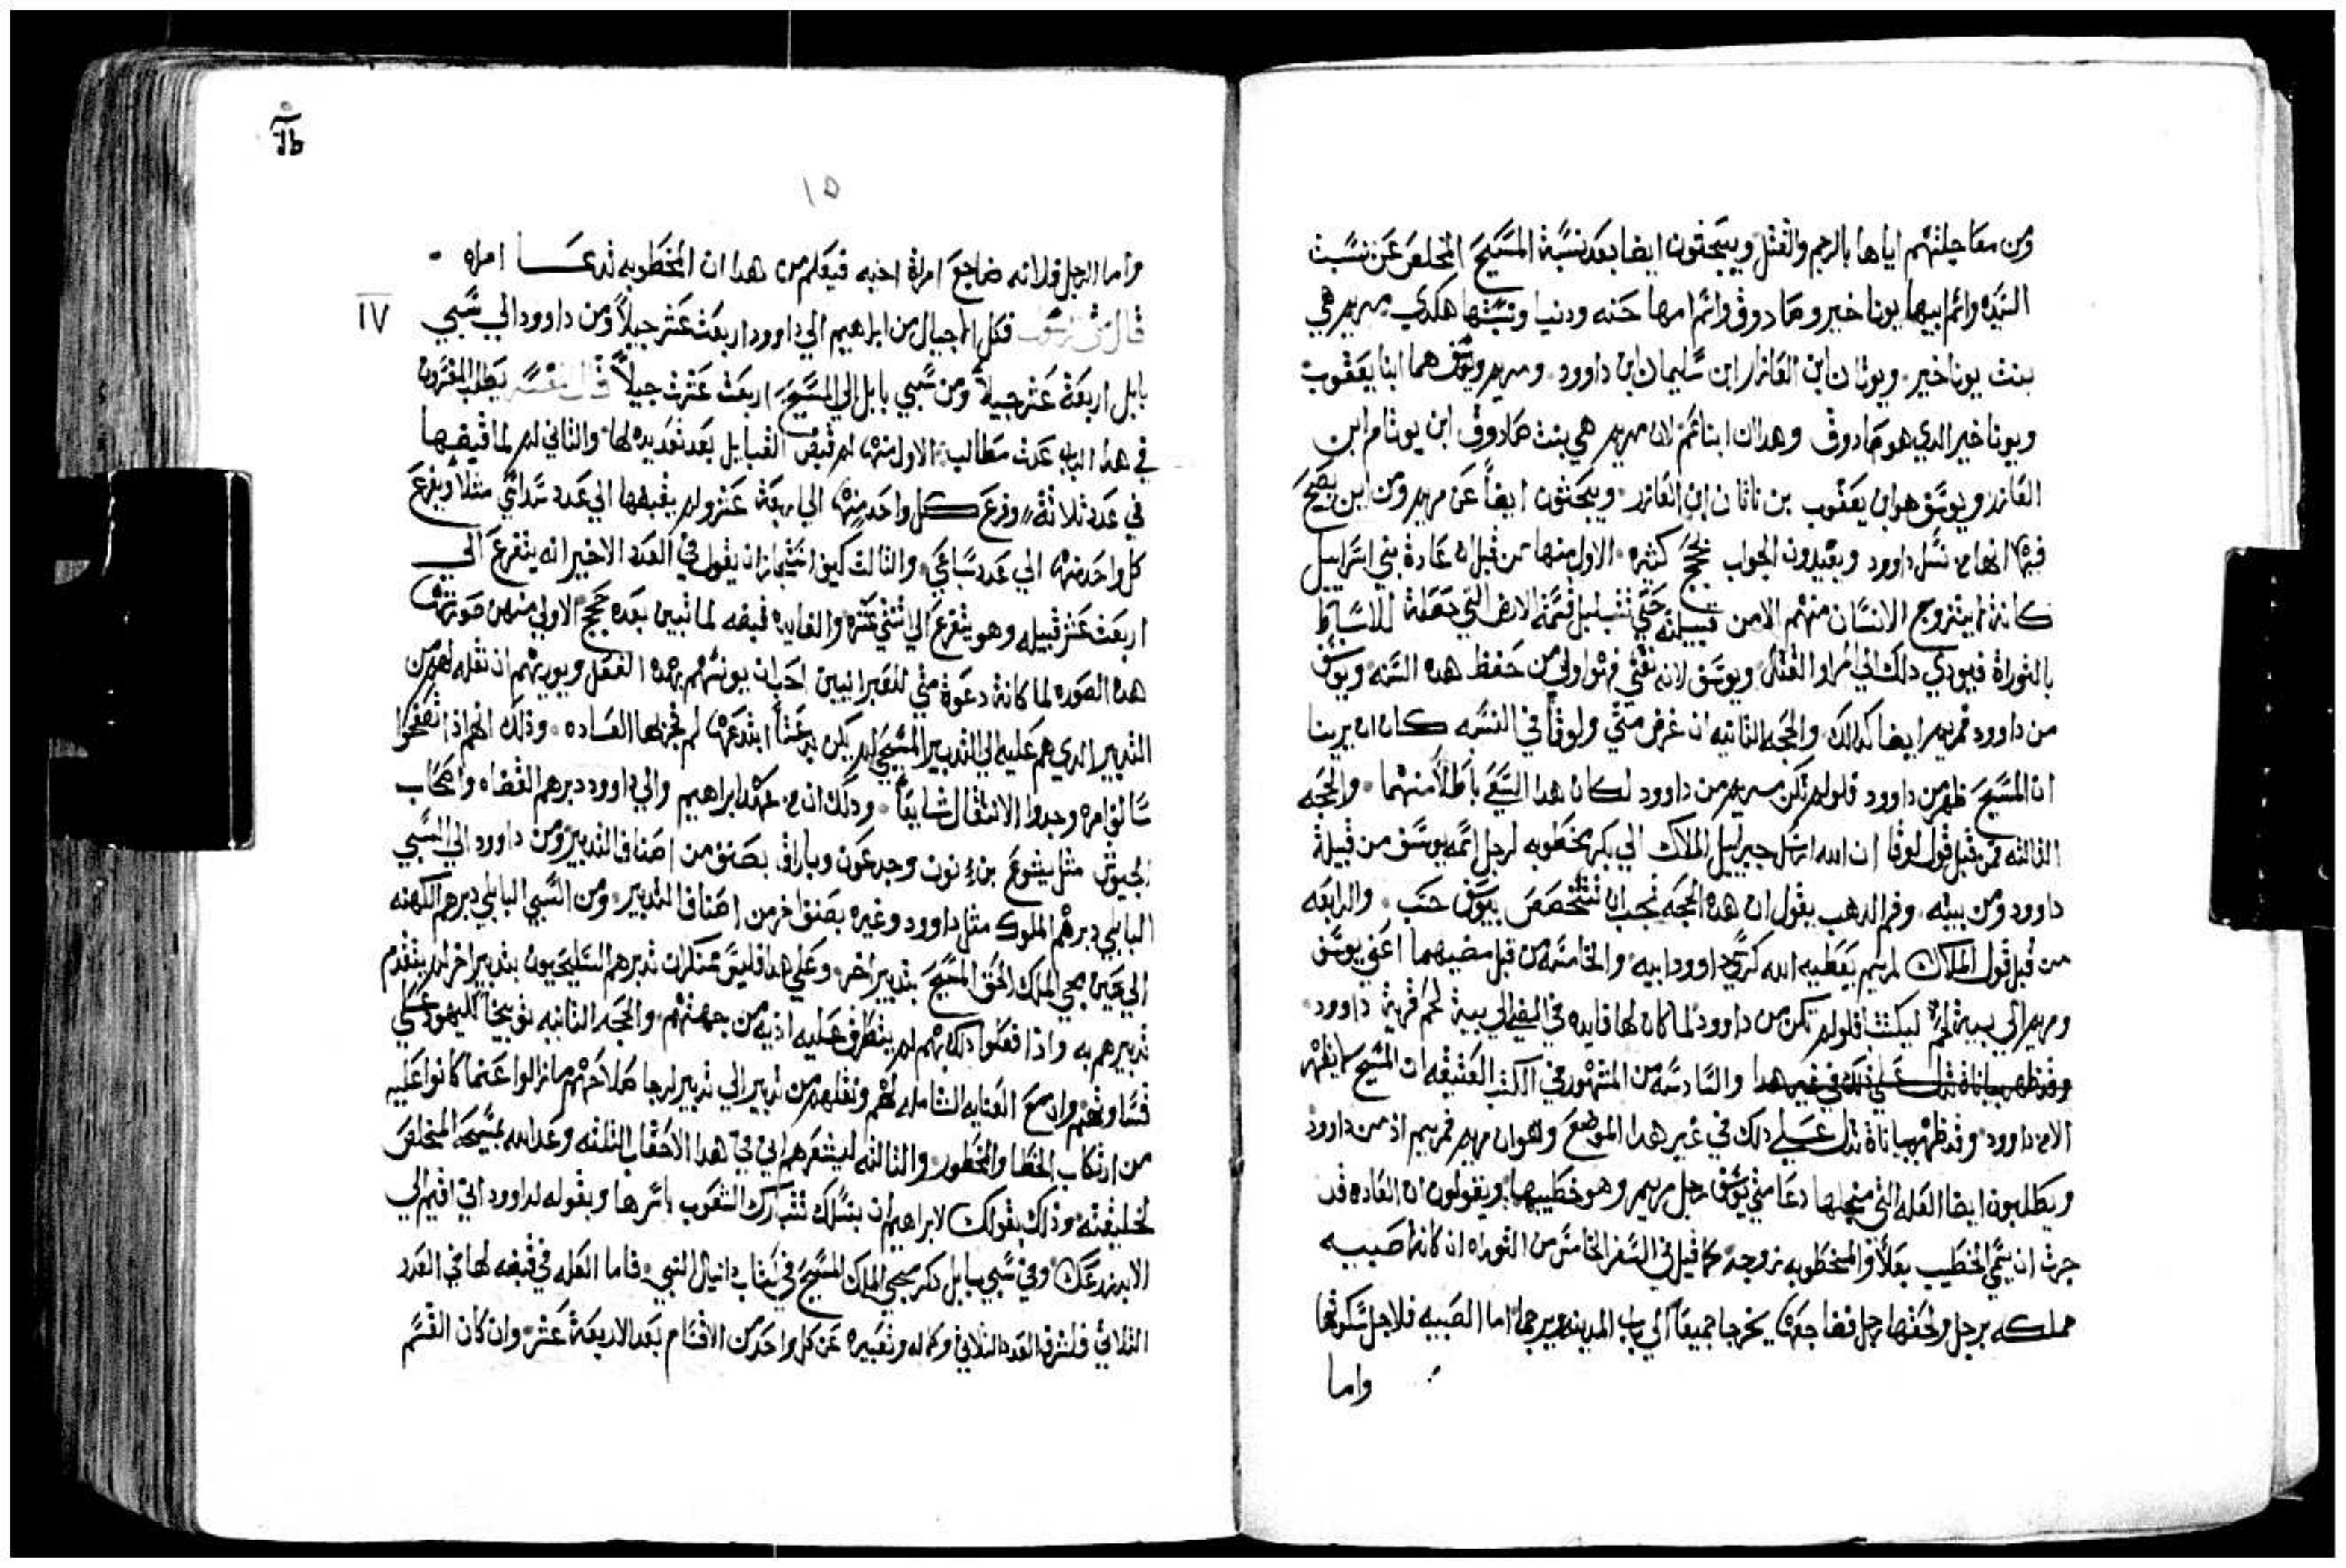 ومن معاجلتهم اياها بالرجم والقتل ويبحثون ايضا بعد نسبة المسيح المخلص عن نسبت
السيده واسم ابيها يوناخير وصادوق واسم امها حنه ودنيا ونسبتها هكدي مريم هي
بنت يوناخير ويوتان ابن العازار ابن سليمان ابن داوود ومريم ويوسف هما ابنا يعقوب
ويوناخير الدي هو صادوق وهدان ابنا عم لان مريم هي بنت صادوق ابن يوتام ابن
العازر ويوسف هو ابن يعقوب بن ناتان ابن العازر ويبحثون ايضاً عن مريم ومن اين يصح
فيها انها من نسل داوود ويعيدون الجواب بحجج كثيره الاول منها من قبل ان عادة بني اسراييل
كانة لا يتزوج الانسان منهم الا من قبيلته حتى تتبلبل قسمة الارض التي جعلة للاسباط
بالتوراة فيودي دلك الي المرا والقتال ويوسف لانه تقي فهو اولي من حفظ هده السنه ويوسف
من داوود فمريم ايضا كدلك والحجه التانيه ان غرض متي ولوقا في النسبه كان ان يرينا
ان المسيح ظهر من داوود فلو لم تكن مريم من داوود لكان هدا السعي باطلاً منهما والحجه
التالته من قبل قول لوقا ان الله ارسل جبراييل الملاك الي بكر مخطوبه لرجل اسمه يوسف من قبيلة
داوود ومن بيته وفم الدهب يقول ان هده الحجه تجب ان تتخصص بيوسف حسب والرابعه
من قبل قول الملاك لمريم يعطيه الله كرسي داوود ابيه والخامسه من قبل مضيهما اعني يوسف
ومريم الي بيت لحم ليكتتبا فلو لم تكن من داوود لما كان لها فايده في المضي الي بيت لحم قرية داوود
وقد ظهر بيانات تدل علي دلك في غير هدا والسادسه من المشهور في الكتب العتيقه ان المسيح لا يظهر
الا من داوود وقد ظهر بيانات تدل علي دلك في غير هدا الموضع ولهوان مريم فمريم اذ من داوود
ويطلبون ايضا العله التي من اجلها دعا متي يوسف رجل مريم وهو خطيبها ويقولون ان العاده قد
جرت ان يسمي الخطيب بعلاً والمخطوبه زوجه كما قيل في السفر الخامس من التوراه ان كانة صبيه
مملكه برجل ولحقها رجل فضاجعها يخرجا جميعاً الي باب المدينه ويرجما اما الصبيه فلاجل سكوتها
واما
١٥
واما الرجل فلانه ضاجع امراة اخيه فيعلم من هدا ان المخطوبه تدعا امراه
قال متي فكل الاجيال من ابراهيم الي داوود اربعت عشر جيلاً ومن داوود الي سبي
IV
بابل اربعة عشر جيلاً ومن سبي بابل الي المسيح اربعت عشرت جيلاً قال المفسر يطلب المفسرون
في هدا الباب عدت مطالب الاول منها لم قبض القبايل بعد تعديده لها والتاني لم لما قبضها
في عدد ثلاثة وفرع كل واحد منها الي اربعة عشر ولم يقبضها الي عدد سداسي مثلاً ويفرع
كل واحد منها الي عدد سباعي والتالت كيف استجاز ان يقول في العدد الاخير انه يتفرع الي
اربعت عشر قبيله وهو يتفرع الي اتني عشر والفايده قبضه لما تبين بعده حجج الاولي منهن صورتها
هده الصوره لما كانة دعوة متي للعبرانيين احب ان يونسهم بهده الفعل ويوريهم ان نقله لهم من
التدبير الدي هم عليه الي التدبير المسيحي لم يكن بدعتاً ابتدعها لم تجر لها العساده ودلك انهم اذا تصفحوا
سالف امره وجدوا الانتقال شايعاً ودلك ان من عهد ابراهيم والي داوود دبرهم القضاه واصحاب
الجيوش مثل يشوع بن نون وجدعون وباراق بصنف من اصناف التدبير ومن داوود الي السبي
البابلي دبرهم الملوك مثل داوود وغيره بصنف اخر من اصناف التدبير ومن السبي البابلي دبرهم الكهنه
الي حين مجي الملك الحق المسيح بتدبير اخر وعلي هدا فليس منكراً ان تدبرهم السليحيون بتدبير اخر لم يتقدم
تدبيرهم به واذا فعلوا دلك بهم لم يتطرق عليه اذيه من جهتهم والحجه التانيه توبيخاً لليهود علي
قساوتهم وان مع العنايه الشامله لهم ونقلهم من تدبير الي تدبير لرجا صلاحهم ما زالوا عما كانوا عليه
من ارتكاب الخطا والمحظور والتالته ليشعرهم اني في هدا الاحقاب التلته وعد الله بمسيحه المخلص
لخليقته ودلك بقولك لابراهيم ان بنسلك تتبارك الشعوب باسرها وبقوله لداوود اني اقيم الي
الابد زرعك وفي سبي بابل دكر مجي الملك المسيح في كتاب دانيال النبي فاما العله في قبضه لها في العدد
التلاتي فلشرف العدد التلاتي وكماله وتعبيره عن كل واحد من الاقسام بعد الاربعة عشر وان كان القسم